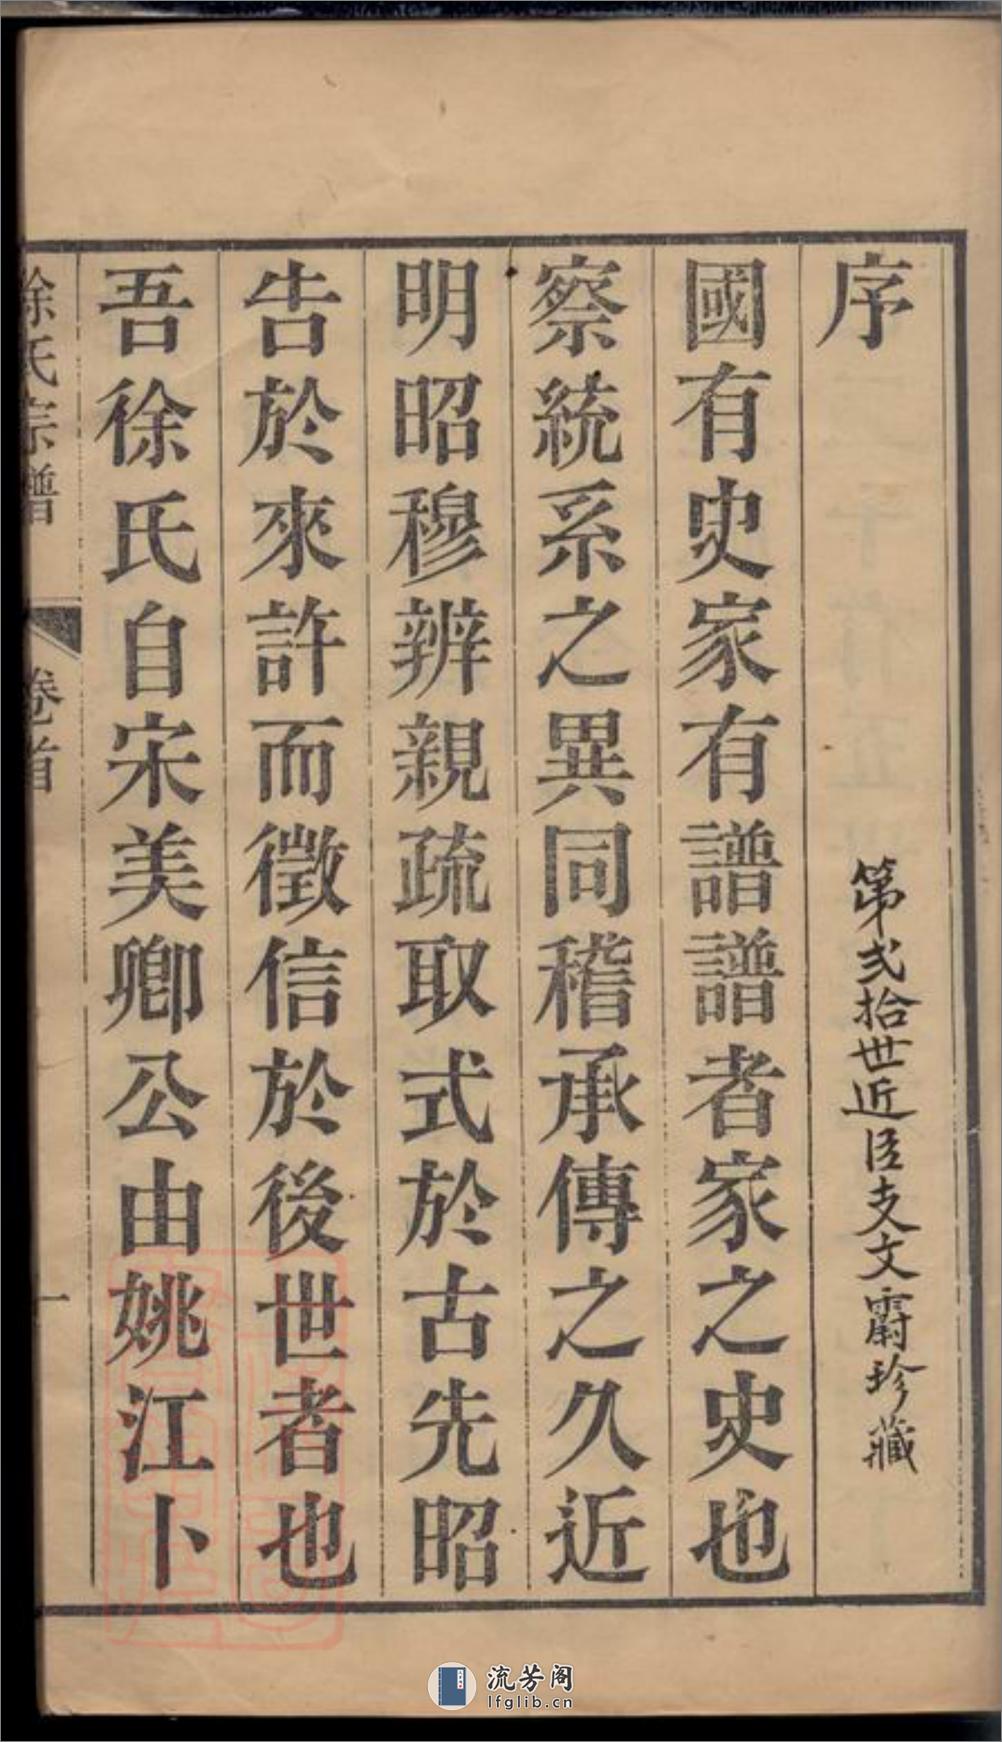 序
第弍拾世近臣支文霨珍藏
國有史家有譜譜者家之史也
察統系之異同稽承傳之久近
明昭穆辨親疏取式於古先昭
告於來許而徵信於後世者也
吾徐氏自宋美卿公由姚江卜
徐氏宗譜 卷首 一
流芳阁
lfglib.cn